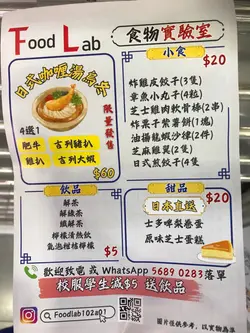 Food Lab
食物實驗室
日式咖喱湯烏冬
限量發售
4選1
肥牛 吉列豬扒
雞扒 吉列大蝦
$60
小食
$20
炸雞皮餃子(3隻)
章魚小丸子(4粒)
芝士雞肉軟骨棒(2串)
炸果干紫薯餅(1塊)
油揚龍蝦沙律(2件)
芝麻雞翼(2隻)
日式煎餃子(4隻)
飲品
解茶
解綠茶
纖解茶
檸檬清熱飲
氣泡柑桔檸檬
$5
甜品
$20
日本直送
士多啤梨卷蛋
原味芝士蛋糕
歡迎致電 或 WhatsApp 5689 0283落單
校服學生減$5 送飲品
Foodlab102a01
圖片僅供參考，以實物為準